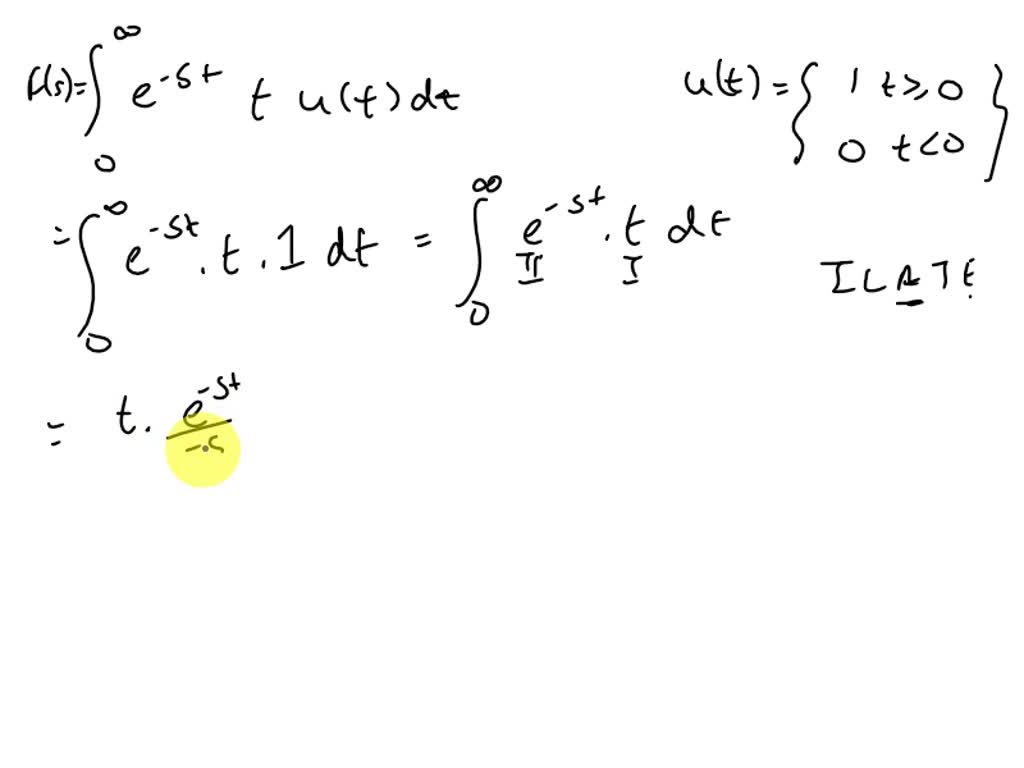 f(s)=∫₀^∞ e^{-st} t u(t) dt
u(t) = { 1 t≥0
0 t<0 }
= ∫₀^∞ e^{-st} . t . 1 dt = ∫₀^∞ e^{-st} . t dt
II I
ILATE
= t. e^{-st}/-s